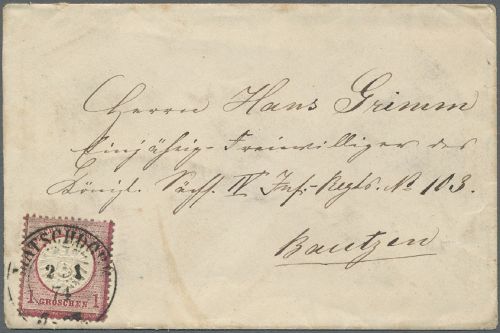 Herrn Hans Grimm
Einjährig-Freiwilliger des
Königl. Sächs. IV Inf.-Regts. No 103.
Bautzen
2 1
74
1 GROSCHEN 1